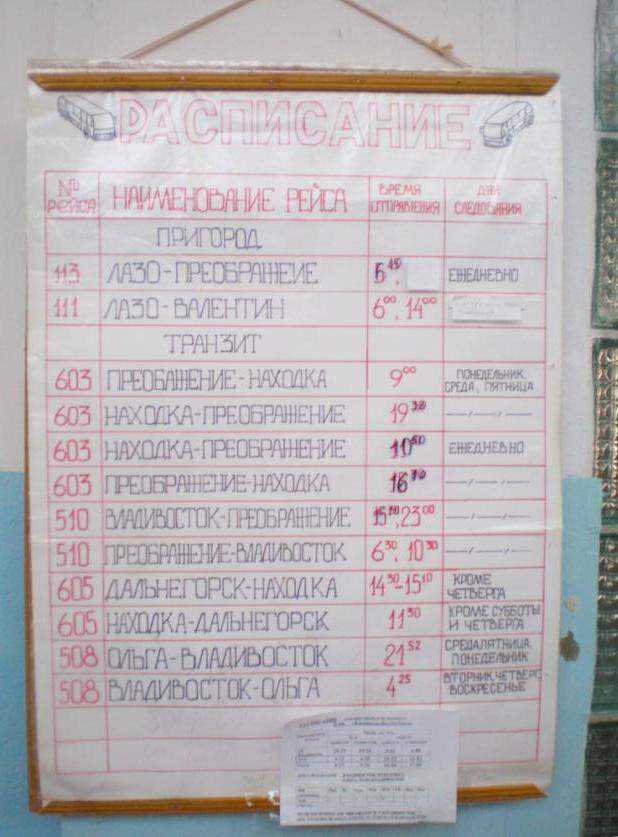 РАСПИСАНИЕ
№ РЕЙСА НАИМЕНОВАНИЕ РЕЙСА ВРЕМЯ ОТПРАВЛЕНИЯ ДНИ СЛЕДОВАНИЯ
ПРИГОРОД
113 ЛАЗО-ПРЕОБРАЖЕИЕ ЕЖЕДНЕВНО
111 ЛАЗО-ВАЛЕНТИН 6⁰⁰, 14⁰⁰
ТРАНЗИТ
603 ПРЕОБАЖЕНИЕ-НАХОДКА 9⁰⁰ ПОНЕДЕЛЬНИК, СРЕДА, ПЯТНИЦА
603 НАХОДКА-ПРЕОБРАЖЕНИЕ 19³⁰ —/—/—
603 НАХОДКА-ПРЕОБРАЖЕНИЕ 10⁵⁰ ЕЖЕДНЕВНО
603 ПРЕОБРАЖЕНИЕ-НАХОДКА 16³⁰ —/—/—
510 ВЛАДИВОСТОК-ПРЕОБРАЖЕНИЕ 23⁰⁰ —/—/—
510 ПРЕОБРАЖЕНИЕ-ВЛАДИВОСТОК 6³⁰, 10³⁰ —/—/—
605 ДАЛЬНЕГОРСК-НАХОДКА 14⁵⁰-15¹⁰ КРОМЕ ЧЕТВЕРГА
605 НАХОДКА-ДАЛЬНЕГОРСК 11³⁰ КРОМЕ СУББОТЫ И ЧЕТВЕРГА
508 ОЛЬГА-ВЛАДИВОСТОК 21⁵² СРЕДА,ПЯТНИЦА, ПОНЕДЕЛЬНИК
508 ВЛАДИВОСТОК-ОЛЬГА 4²⁵ ВТОРНИК,ЧЕТВЕРГ, ВОСКРЕСЕНЬЕ